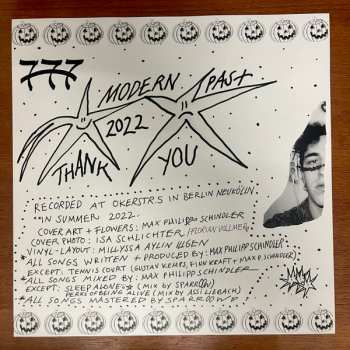 777
MODERN PAST
2022
THANK YOU
RECORDED AT OKERSTR.5 IN BERLIN NEUKÖLLN
IN SUMMER 2022.
COVER ART + FLOWERS: MAX PHILIPP SCHINDLER
COVER PHOTO: ISA SCHLICHTER (FLORIAN VOLLMER)
VINYL-LAYOUT: MILLYSSA AYLIN ILLGEN
*ALL SONGS WRITTEN + PRODUCED BY: MAX PHILIPP SCHINDLER
EXCEPT: TENNIS COURT (GUSTAV KEMP, FINN KRAFT + MAX P. SCHINDLER)
*ALL SONGS MIXED BY: MAX PHILIPP SCHINDLER
EXCEPT: SLEEP ALONE (MIX BY SPARROOW)
PERKS OF BEING ALIVE (MIX BY ASSI LIEBACH)
*ALL SONGS MASTERED BY SPARROOW